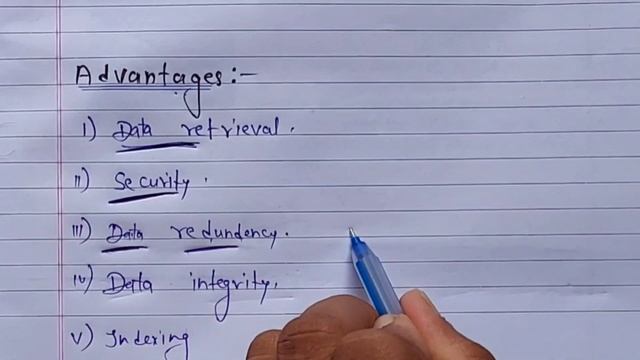 Advantages:-
i) Data retrieval.
ii) Security.
iii) Data redundency.
iv) Data integrity.
v) Indexing